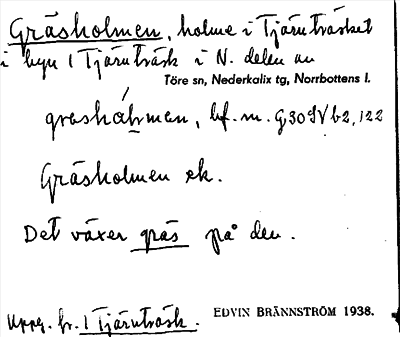 Gräsholmen, holme i Tjärnträsket
i byn 1 Tjärnträsk i N. delen av
Töre sn, Nederkalix tg, Norrbottens l.
gräshå̱lmen, bf. m. G30SVb2,122
Gräsholmen ek.
Det växer gräs på den.
Uppg. br. 1 Tjärnträsk.
EDVIN BRÄNNSTRÖM 1938.